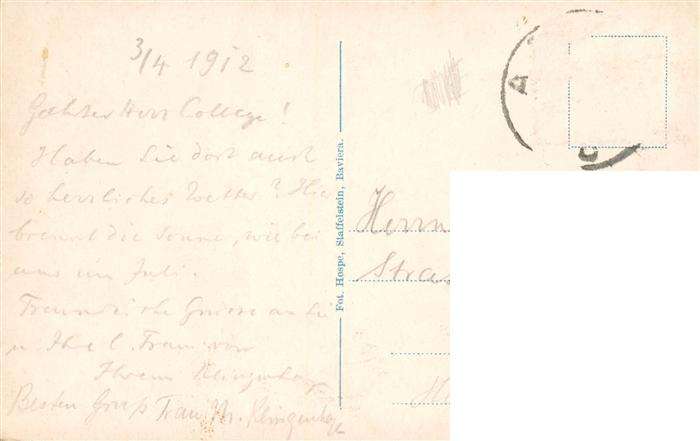 3/4 1912
Geehrter Herr College!
Haben Sie dort auch
so herrliches Wetter? Hier
brennt die Sonne, wie bei
uns im Juli.
Freundliche Grüsse an Sie
u Ihre l. Frau von
Ihrem
Besten Gruß Frau Dr.
Fot. Hospe, Staffelstein, Baviera.
Herrn
Stras